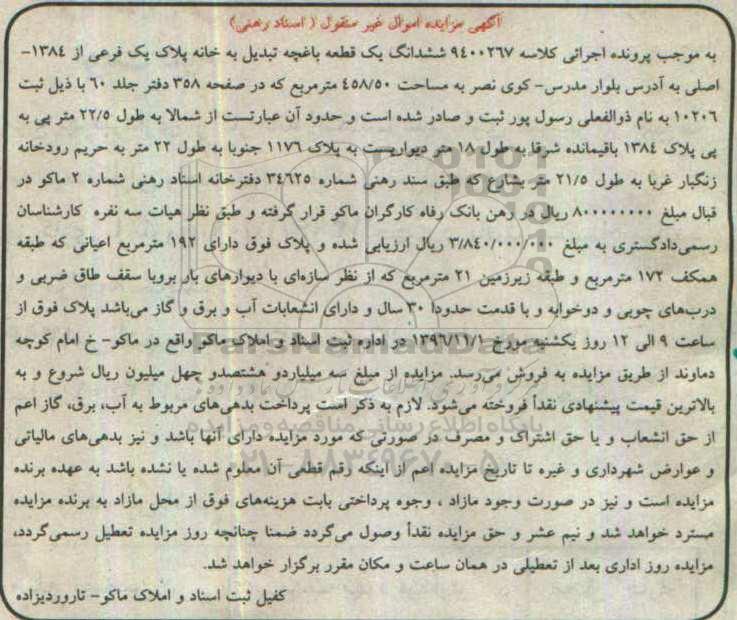 آگهی مزایده اموال غیر منقول ( اسناد رهنی)
به موجب پرونده اجرائی کلاسه ۹٤۰۰۲٦۷ ششدانگ یک قطعه باغچه تبدیل به خانه پلاک یک فرعی از ۱۳۸٤-
اصلی به آدرس بلوار مدرس- کوی نصر به مساحت ٤٥۸/٥۰ مترمربع که در صفحه ۳٥۸ دفتر جلد ٦۰ با ذیل ثبت
۱۰۲۰٦ به نام ذوالفعلی رسول پور ثبت و صادر شده است و حدود آن عبارتست از شمالا به طول ۲۲/٥ متر پی به
پی پلاک ۱۳۸٤ باقیمانده شرقا به طول ۱۸ متر دیواریست به پلاک ۱۱۷٦ جنوبا به طول ۲۲ متر به حریم رودخانه
زنگبار غربا به طول ۲۱/٥ متر بشارع که طبق سند رهنی شماره ۳٤٦۲٥ دفترخانه اسناد رهنی شماره ۲ ماکو در
قبال مبلغ ۸۰۰۰۰۰۰۰۰ ریال در رهن بانک رفاه کارگران ماکو قرار گرفته و طبق نظر هیات سه نفره کارشناسان
رسمی‌دادگستری به مبلغ ۳/۸٤۰/۰۰۰/۰۰۰ ریال ارزیابی شده و پلاک فوق دارای ۱۹۲ مترمربع اعیانی که طبقه
همکف ۱۷۲ مترمربع و طبقه زیرزمین ۲۱ مترمربع که از نظر سازه‌ای با دیوارهای بار بروبا سقف طاق ضربی و
درب‌های چوبی و دوخوابه و با قدمت حدودا ۳۰ سال و دارای انشعابات آب و برق و گاز می‌باشد پلاک فوق از
ساعت ۹ الی ۱۲ روز یکشنبه مورخ ۱۳۹٦/۱۱/۱ در اداره ثبت اسناد و املاک ماکو واقع در ماکو- خ امام کوچه
دماوند از طریق مزایده به فروش می‌رسد. مزایده از مبلغ سه میلیاردو هشتصدو چهل میلیون ریال شروع و به
بالاترین قیمت پیشنهادی نقداً فروخته می‌شود. لازم به ذکر است پرداخت بدهی‌های مربوط به آب، برق، گاز اعم
از حق انشعاب و یا حق اشتراک و مصرف در صورتی که مورد مزایده دارای آنها باشد و نیز بدهی‌های مالیاتی
و عوارض شهرداری و غیره تا تاریخ مزایده اعم از اینکه رقم قطعی آن معلوم شده یا نشده باشد به عهده برنده
مزایده است و نیز در صورت وجود مازاد ، وجوه پرداختی بابت هزینه‌های فوق از محل مازاد به برنده مزایده
مسترد خواهد شد و نیم عشر و حق مزایده نقداً وصول می‌گردد ضمنا چنانچه روز مزایده تعطیل رسمی‌گردد،
مزایده روز اداری بعد از تعطیلی در همان ساعت و مکان مقرر برگزار خواهد شد.
کفیل ثبت اسناد و املاک ماکو- تاروردیزاده
ParsNamadData
پایگاه اطلاع رسانی مناقصه و مزایده
۰۲۱-۸۸۳٤۹٦۷۰-٥